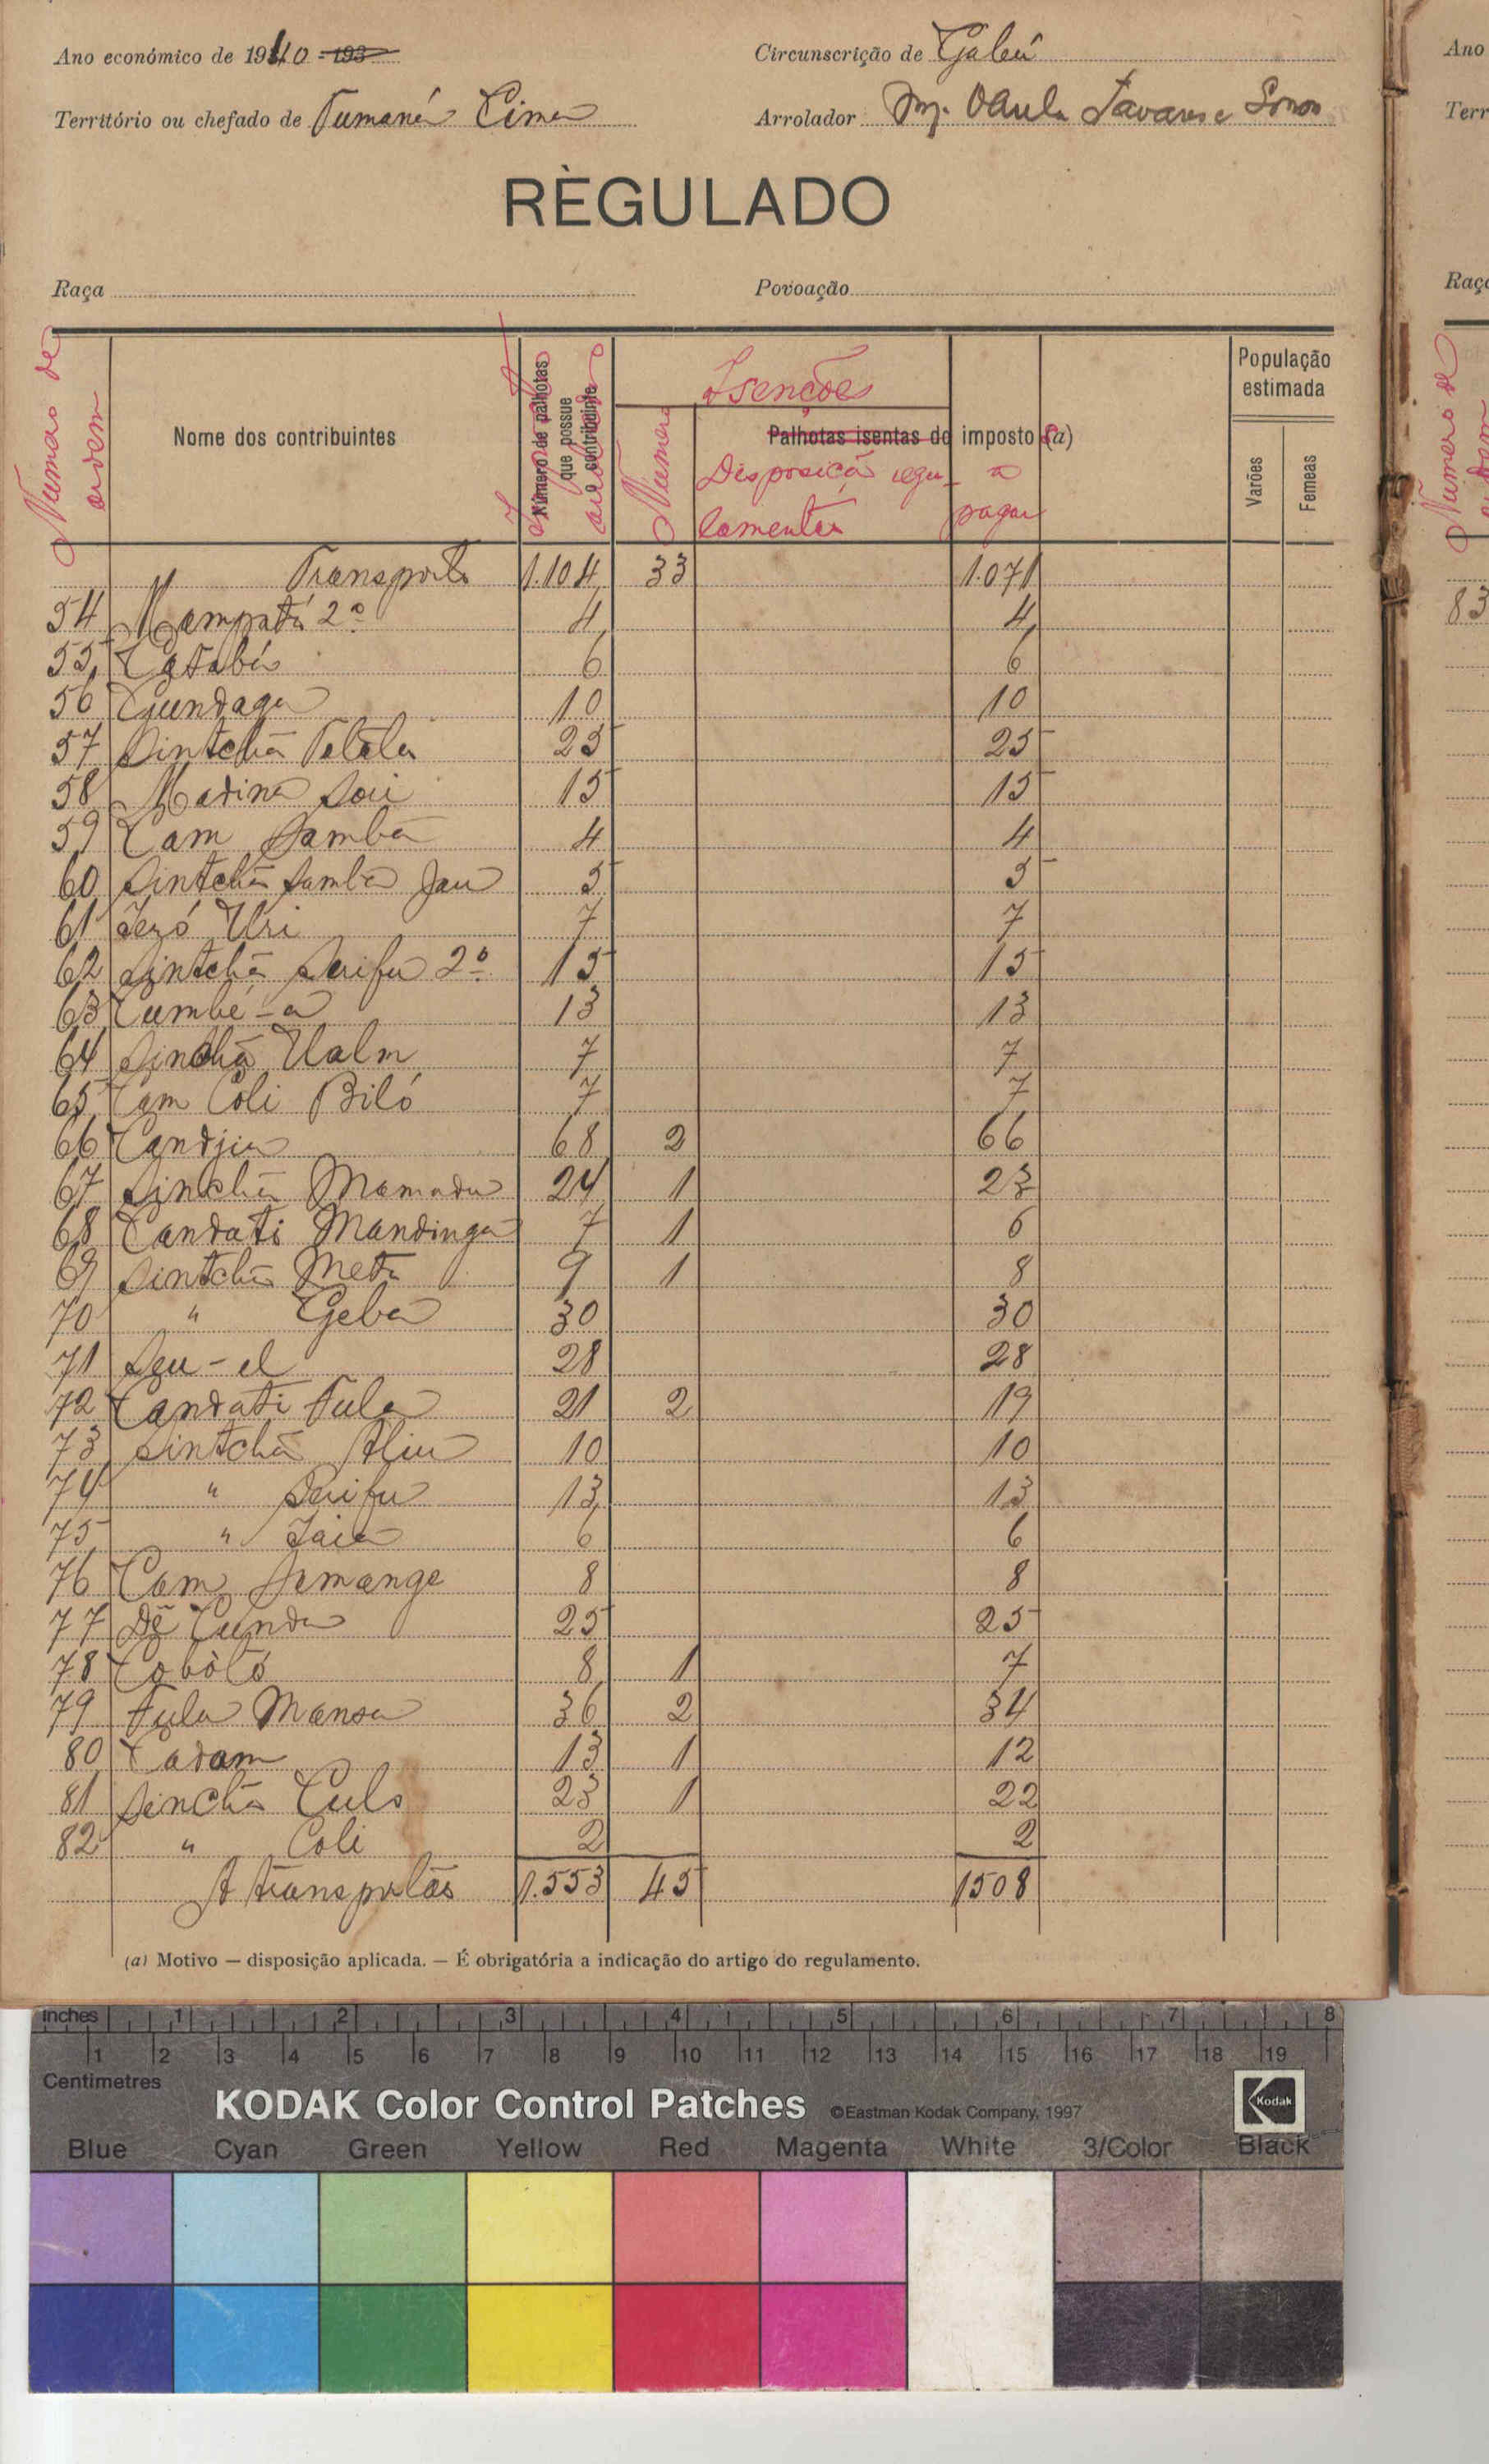 Ano económico de 1940 - 193
Circunscrição de Gabú
Território ou chefado de Tumaná Cima
Arrolador Tavares e
RÈGULADO
Raça
Povoação
Numero de ordem
Nome dos contribuintes
Número de palhotas que possue o contribuinte
Imposto arrolado
Isenções
Numero
Palhotas isentas do imposto (a)
Disposição regulamentar
a pagar
População estimada
Varões
Femeas
Transporte 1.104 33 1.071
54 Mampatá 2º 4 4
55 Catabá 6 6
56 Gundaga 10 10
57 Sintchã 25 25
58 Madina 15 15
59 Cam Sambá 4 4
60 Sintchã Samba Jau 5 5
61 Uri 7 7
62 Sintchã Serifu 2º 15 15
63 Cumbé-a 13 13
64 Sinchã 7 7
65 Cam Coli Biló 7 7
66 Candjia 68 2 66
67 Sinchã Mamadu 24 1 23
68 Candati Mandinga 7 1 6
69 Sintchã Meta 9 1 8
70 " Geba 30 30
71 Seu-el 28 28
72 Candati Fula 21 2 19
73 Sintchã Aliu 10 10
74 " Serifu 13 13
75 " Iaia 6 6
76 Cam Samange 8 8
77 Dê Cunda 25 25
78 Cobòtó 8 1 7
79 Fula Mansa 36 2 34
80 Cadam 13 1 12
81 Senchã Culo 23 1 22
82 " Coli 2 2
A transportar 1.553 45 1508
(a) Motivo — disposição aplicada. — É obrigatória a indicação do artigo do regulamento.
Ano
Terr
Raça
Número de ordem
83
inches 1 2 3 4 5 6 7 8
1 2 3 4 5 6 7 8 9 10 11 12 13 14 15 16 17 18 19
Centimetres
KODAK Color Control Patches ©Eastman Kodak Company, 1997 Kodak
Blue Cyan Green Yellow Red Magenta White 3/Color Black